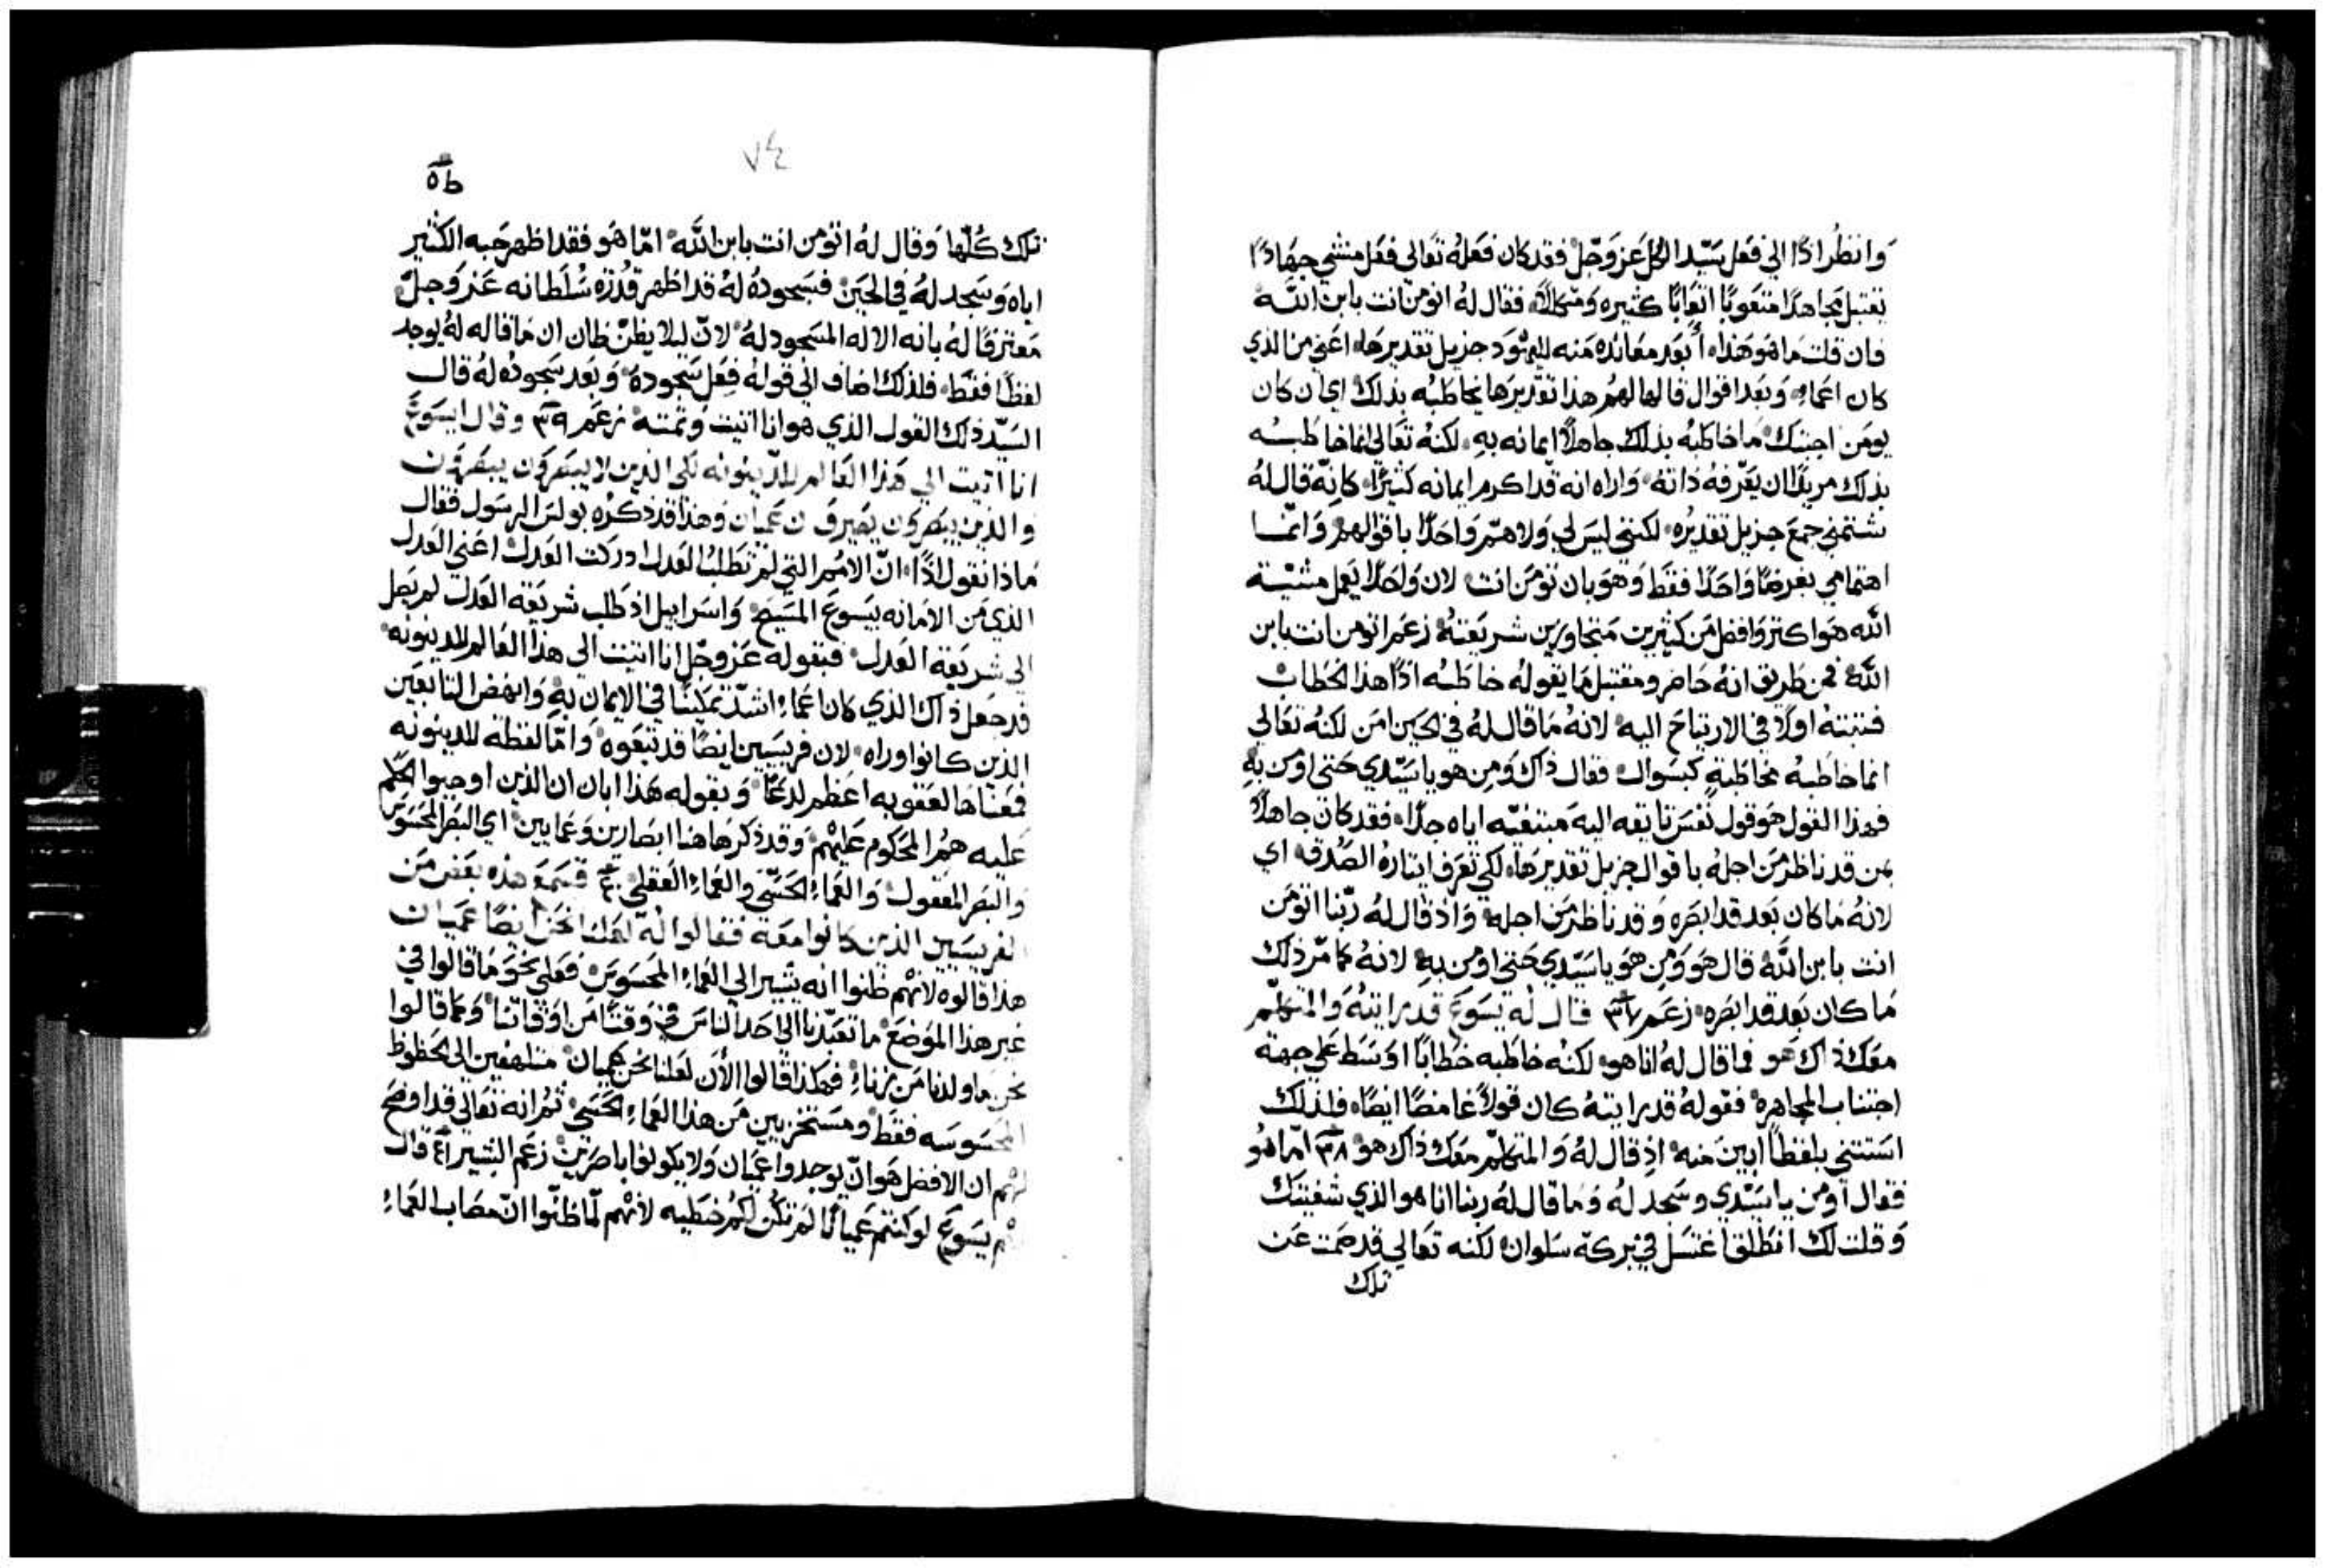 وانظر اذًا الي فعل سيد الكل عز وجل فقد كان فعله تعالى فعل منشي جهاد اذا
تقبل مجاهدًا متعوبًا اتعابًا كثيره ومكللاً، فقال له اتومن انت بابن الله
فان قلت ما هو هذا، أبعد معانده منه لليهود جزيل تقديرها، اعني من الذي
كان اعماء، وبعد اقوال قالها لهم هذا تقديرها يخاطبه بذلك اي ان كان
يومن اجبتك ما خاطبه بذلك جاهلاً ايمانه به، لكنه تعالى انما خاطبه
بذلك مريدًا ان يعرفه ذاته، واراه انه قد اكرم ايمانه كثيرًا، كانه قال له
شتمني جمع جزيل تقديره، لكنني ليس لي ولا هم واحدًا باقوالهم وانما
اهتمامي بغرضًا واحدًا فقط وهو بان تومن انت، لان واحدًا يعمل مشية
الله هو اكثر وافضل من كثيرين متجاوزين شريعته، زعم اتومن انت بابن
الله، فمن طريق انه حاضر ومقتبل ما يقوله خاطبه اذًا هذا الخطاب
فثبته اولاً في الارتياح اليه، لانه ما قال له في الحين امن لكنه تعالى
انما خاطبه مخاطبةٍ كسوال، فقال ذاك ومن هو يا سيدي حتى اومن به
فهذا القول هو قول نفس تايقه اليه مبتغيه اياه جدًا، فقد كان جاهلاً
بمن قد ناظر من اجله باقوال جزيل تقديرها، لكي تعرف ايثاره الصدق، اي
لانه ما كان بعد قد ابصره وقد ناظر من اجله، واذ قال له ربنا اتومن
انت بابن الله، قال هو ومن هو يا سيدي حتى اومن به، لانه كما مر ذلك
ما كان بعد قد ابصره، زعم ٣٧ قال له يسوع قد رايته والمتكلم
معك ذاك هو فما قال له انا هو، لكنه خاطبه خطابًا اوسط على جهة
اجتناب المجاهرة، فقوله قد رايته كان قولاً غامضًا ايضًا، فلذلك
استثني بلفظًا ابين منه، اذ قال له والمتكلم معك ذاك هو، ٣٨ اما هو
فقال اومن يا سيدي وسجد له وما قال له ربنا انا هو الذي شفيتك
وقلت لك انطلق اغتسل في بركة سلوان، لكنه تعالى قد صمت عن
تلك
٧٤
تلك كلها وقال له اتومن انت بابن الله، اما هو فقد اظهر حبه الكثير
اياه وسجد له في الحين، فسجوده له قد اظهر قدرة سلطانه عز وجل
معترفًا له بانه الاله المسجود له، لان ليلا يظن ظان ان ما قاله له يوجد
لفظًا فقط، فلذلك اضاف الي قوله فعل سجوده، وبعد سجوده له قال
السيد ذلك القول الذي هو انا اتيت وتمته، زعم ٣٩ وقال ايسوع
انا اتيت الي هذا العالم للدينونه لكي الذين لا يبصرون يبصرون
والذين يبصرون يصيرون عميان وهذا قد ذكره بولس الرسول فقال
ماذا نقول اذًا، ان الامم التي لم تطلب العدل ادركت العدل، اعني العدل
الذي من الامانه بيسوع المسيح، واسراييل اذ طلب شريعة العدل لم يصل
الي شريعة العدل، فبقوله عز وجل انا اتيت الي هذا العالم للدينونه
قد جعل ذاك الذي كان اعماء اشد تمكينًا في الايمان به، وانهض التابعين
الذين كانوا وراه، لان فريسيين ايضًا قد تبعوه، واما لفظة للدينونه
فمعناها لعقوبه اعظم لدغًا، وبقوله هذا ابان ان الذين اوجبوا الحكم
عليه هم المحكوم عليهم، وقد ذكر هاهنا ابصارين وعمايين، اي البصر المحسوس
والبصر المعقول، والعماء الحسي والعماء العقلي، ٤٠ فسمع هذه بعض من
الفريسيين الذين كانوا معه فقالوا له لعلنا نحن ايضًا عميان
هذا قالوه لانهم ظنوا انه يشير الي العماء المحسوس، فعلى نحو ما قالوا في
غير هذا الموضع، ما تعبدنا الي احد الناس في وقتًا من اوقاتنا، وكما قالوا
نحن ما ولدنا من زناء، فهكذا قالوا الان لعلنا نحن عميان، متلهفين الي الحظوظ
المحسوسه فقط، ومستخزيين من هذا العماء الحسي، ثم انه تعالى قد اوضح
لهم ان الافضل هو ان يوجدوا عميان ولا يكونوا باصرين، زعم البشير ٤١ قال
لهم يسوع لو كنتم عميانًا لم تكن لكم خطيه لانهم لما ظنوا ان مصاب العماء